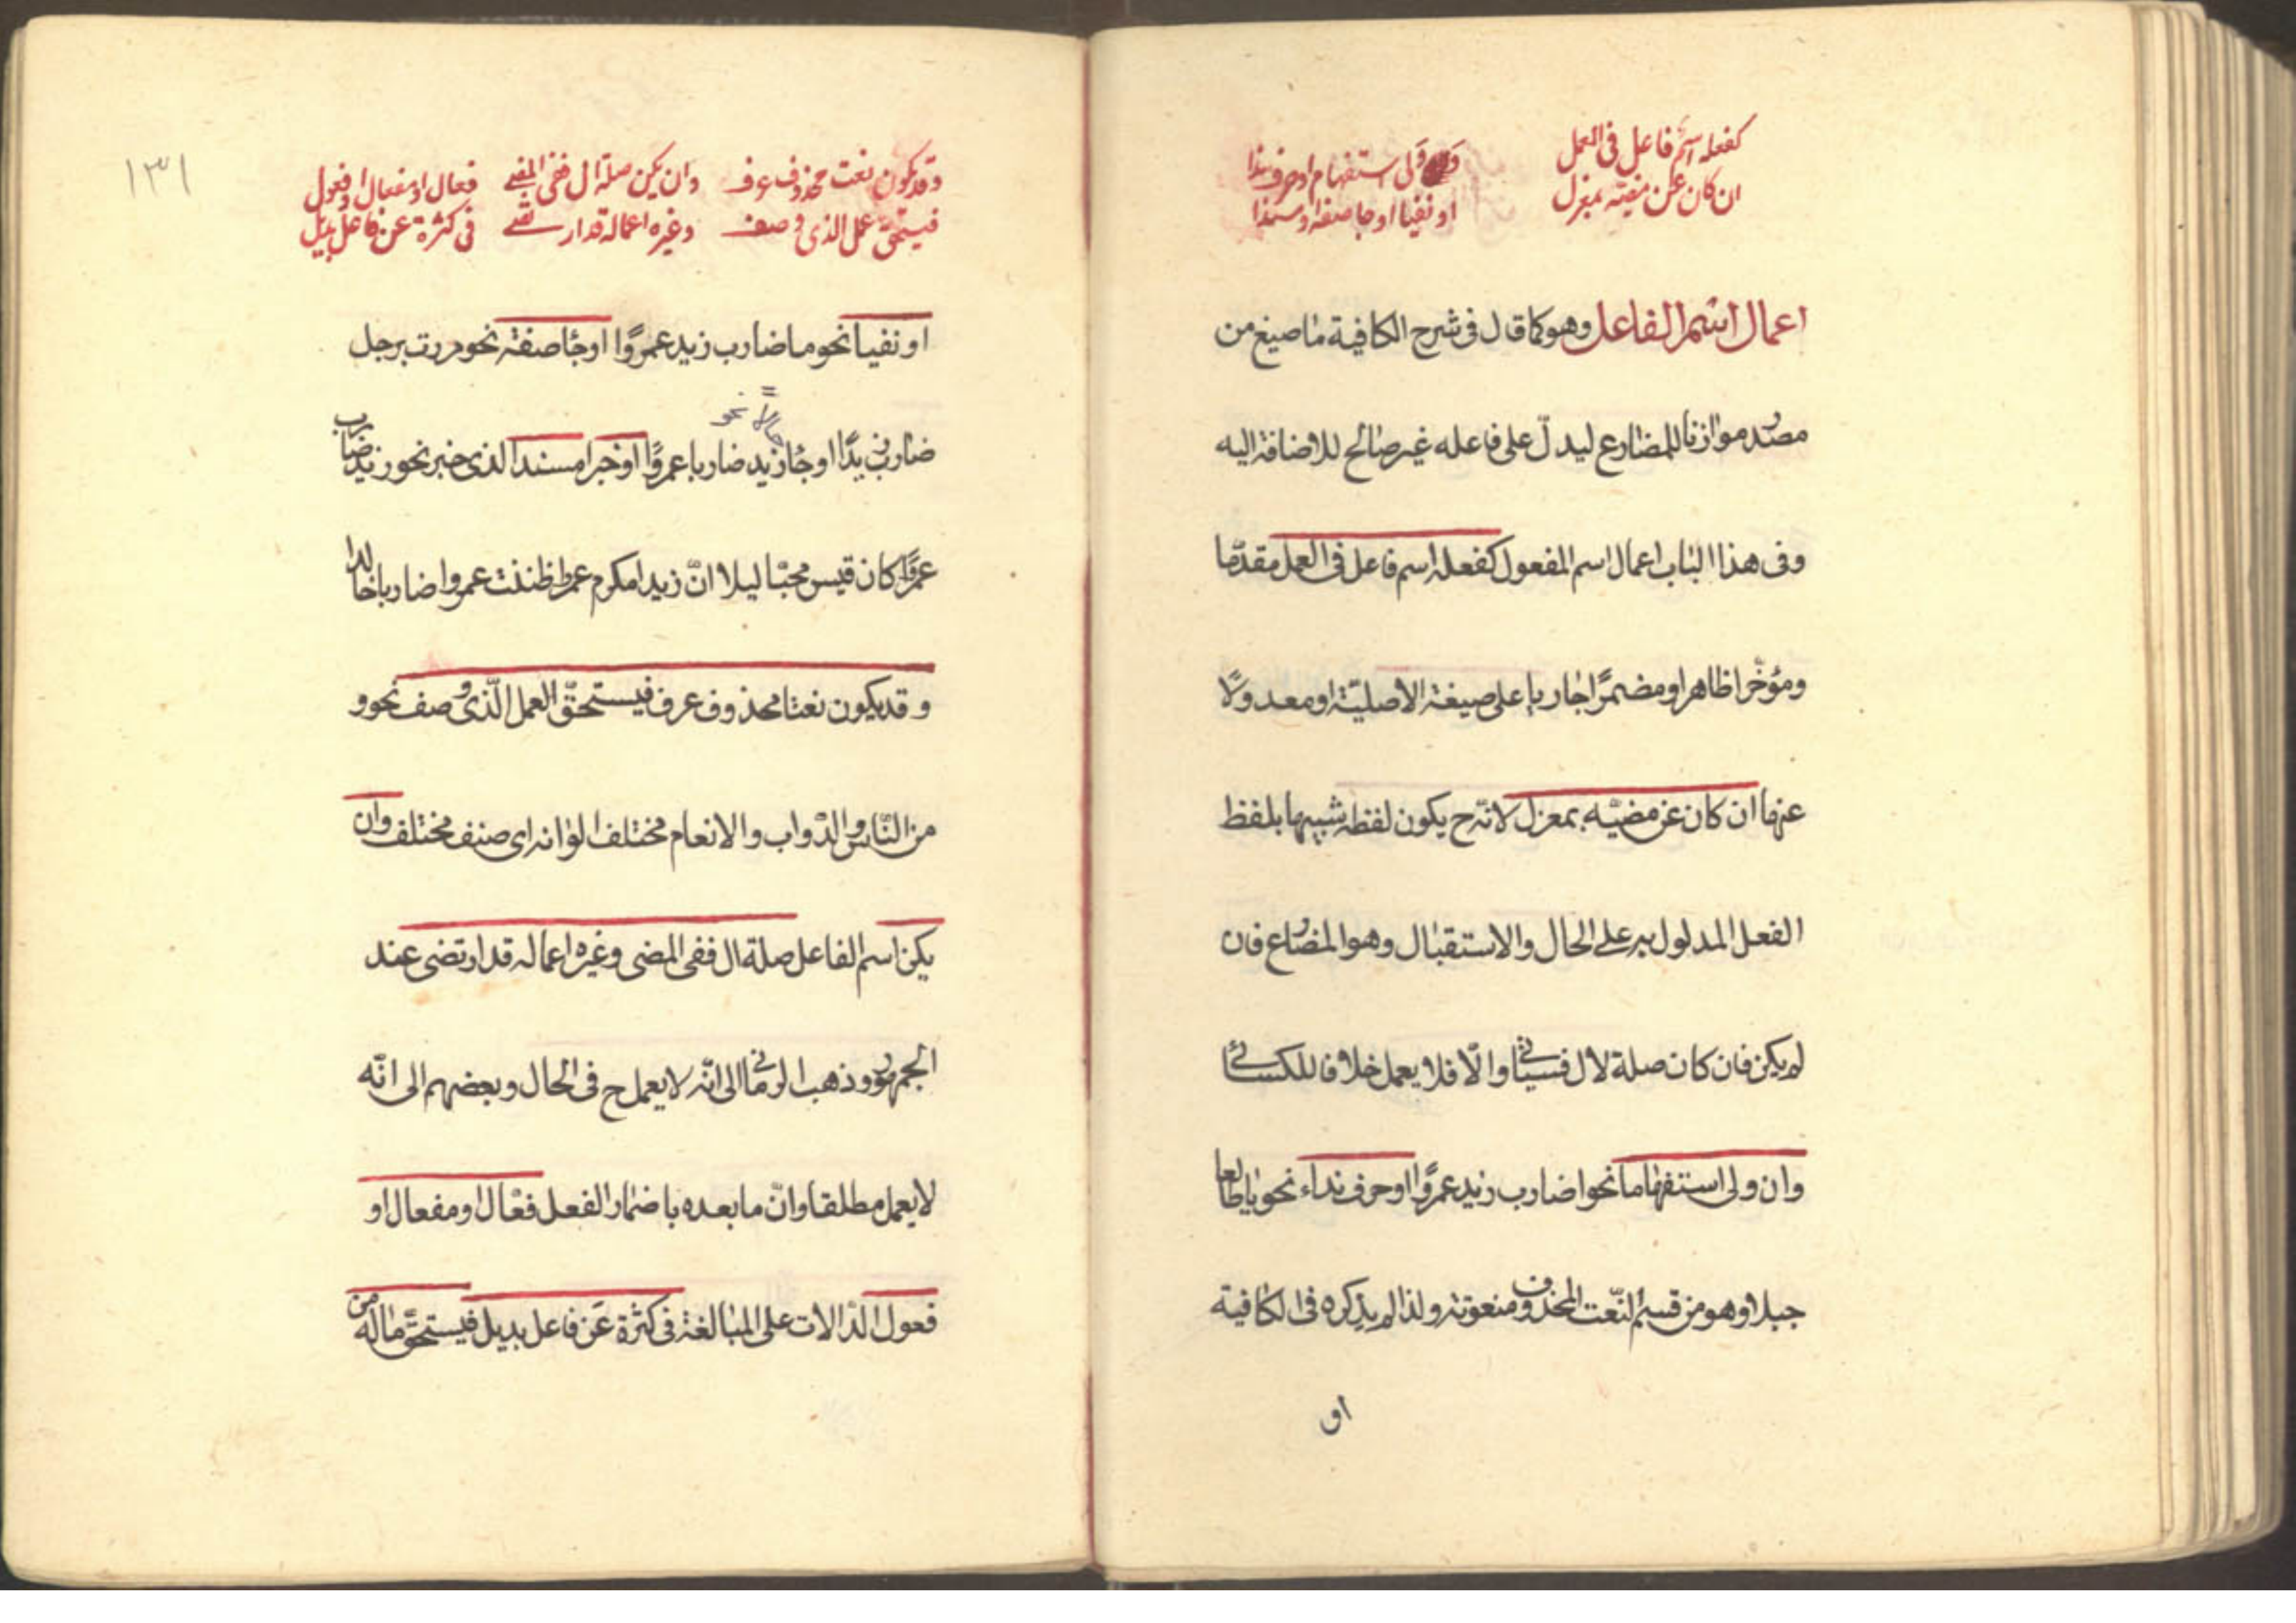 كفعله اسم فاعل فى العمل
ان كان عن مضيه بمعزل
وولى استفهام او حرف ندا
او نفيا او جا صفة او مسندا
اعمال اسم الفاعل وهو كما قال فى شرح الكافية ما صيغ من
مصدر موازنا للمضارع ليدلّ على فاعله غير صالح للاضافة اليه
وفى هذا الباب اعمال اسم المفعول كفعله اسم فاعل فى العمل مقدّما
ومؤخّرا ظاهرا او مضمرًا جاريا على صيغة الاصليّة او معدولًا
عنها ان كان عن مضيّه بمعزل لانّه ح يكون لفظه شبيها بلفظ
الفعل المدلول به على الحال والاستقبال وهو المضارع فان
لم يكن فان كان صلة لال فسياتى والّا فلا يعمل خلافا للكسائى
وان ولى استفهاما نحو اضارب زيد عمروًا او حرف نداء نحو يا طالعا
جبلا وهو من قسم النّعت المحذوف منعوته ولذا لم يذكره فى الكافية
او
١٣١
وقد يكون نعت محذوف عرف
فيستحقّ عمل الذى وصف
وان يكن صلة ال ففى المضى
وغيره اعماله قد ارتضى
فعال او مفعال او فعول
فى كثرة عن فاعل بديل
او نفيا نحو ما ضارب زيد عمروًا او جا صفة نحو مررت برجل
ضارب زيدًا او جاء زيد ضاربا عمروًا او خبرا مسندا لذى خبر نحو زيد ضارب
حالا نحو
عمروًا كان قيس محبّا ليلا انّ زيدا مكرم عمرا ظننت عمروا ضاربا خالدا
وقد يكون نعتا محذوف عرف فيستحقّ العمل الّذى وصف نحو و
من النّاس والدّواب والانعام مختلف الوانه اى صنف مختلف وان
يكن اسم الفاعل صلة ال ففى المضى وغيره اعماله قد ارتضى عند
الجمهور وذهب الرمانى الى انّه لا يعمل ح فى الحال وبعضهم الى انّه
لا يعمل مطلقا وانّ ما بعده باضمار الفعل فعّال او مفعال او
فعول الدّالات على المبالغة فى كثرة عن فاعل بديل فيستحقّ ماله من